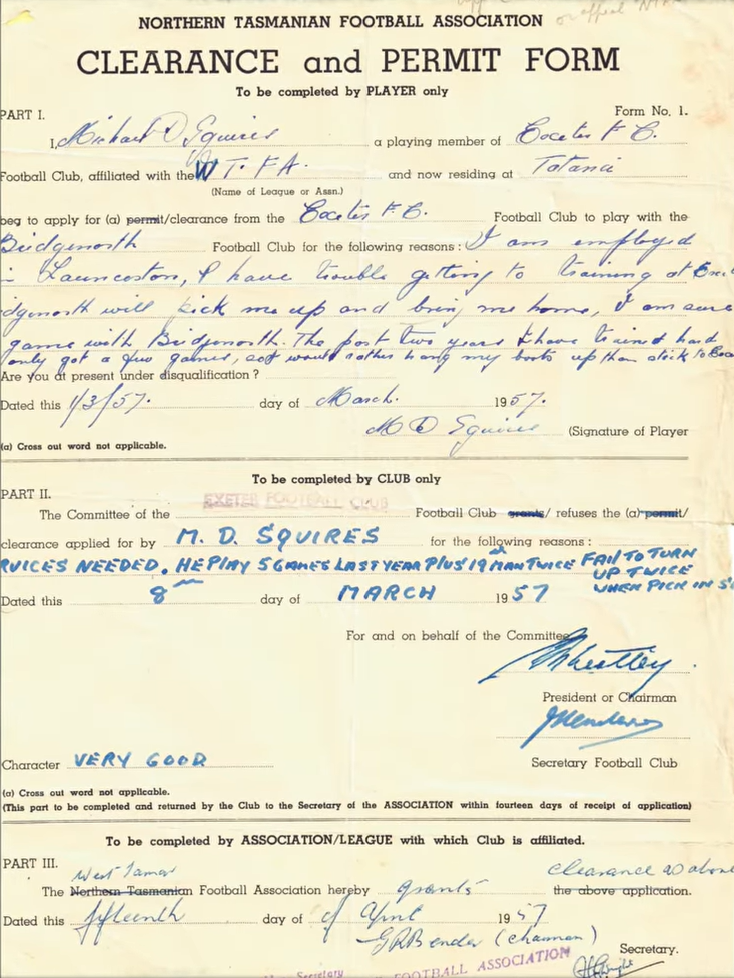 or appeal
NORTHERN TASMANIAN FOOTBALL ASSOCIATION
CLEARANCE and PERMIT FORM
To be completed by PLAYER only
PART I. Form No. 1.
I, Michael D Squires a playing member of Exeter F C.
Football Club, affiliated with the W T. F A. and now residing at
(Name of League or Assn.)
beg to apply for (a) permit/clearance from the Exeter F.C. Football Club to play with the
Bridgenorth Football Club for the following reasons : I am employed
in Launceston, I have trouble getting to training at
will pick me up and bring me home, I am sure
game with Bridgenorth. The past two years I have trained hard
only got a few games, would rather hang my boots up than stick to
Are you at present under disqualification ?
Dated this 1/3/57. day of March. 1957.
M D Squires (Signature of Player
(a) Cross out word not applicable.
To be completed by CLUB only
PART II. EXETER FOOTBALL CLUB
The Committee of the Football Club grants/ refuses the (a) permit/
clearance applied for by M. D. SQUIRES for the following reasons :
RVICES NEEDED. HE PLAY 5 GAMES LAST YEAR PLUS 19th MAN TWICE FAIL TO TURN
UP TWICE
WHEN PICK IN
Dated this 8th day of MARCH 1957
For and on behalf of the Committee
President or Chairman
Character VERY GOOD Secretary Football Club
(a) Cross out word not applicable.
(This part to be completed and returned by the Club to the Secretary of the ASSOCIATION within fourteen days of receipt of application)
To be completed by ASSOCIATION/LEAGUE with which Club is affiliated.
PART III. West Tamar clearance as above
The Northern Tasmanian Football Association hereby grants the above application.
Dated this fifteenth day of of April 1957
G R Bender (chairman) Secretary.
Secretary FOOTBALL ASSOCIATION